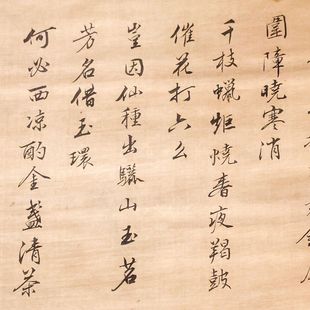 圍障曉寒消
千枝蠟炬燒春夜羯鼓
催花打六么
豈因仙種出驪山玉茗
芳名借玉環
何必西凉酌金盞清茶